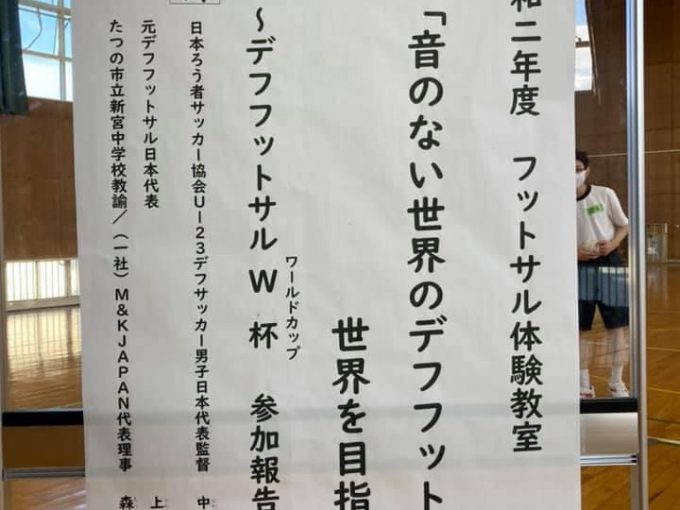 和二年度 フットサル体験教室
「音のない世界のデフフット
世界を目指
～デフフットサルW杯 参加報告
ワールドカップ
日本ろう者サッカー協会U－23デフサッカー男子日本代表監督 中
元デフフットサル日本代表 上
たつの市立新宮中学校教諭／（一社）M&KJAPAN代表理事 森